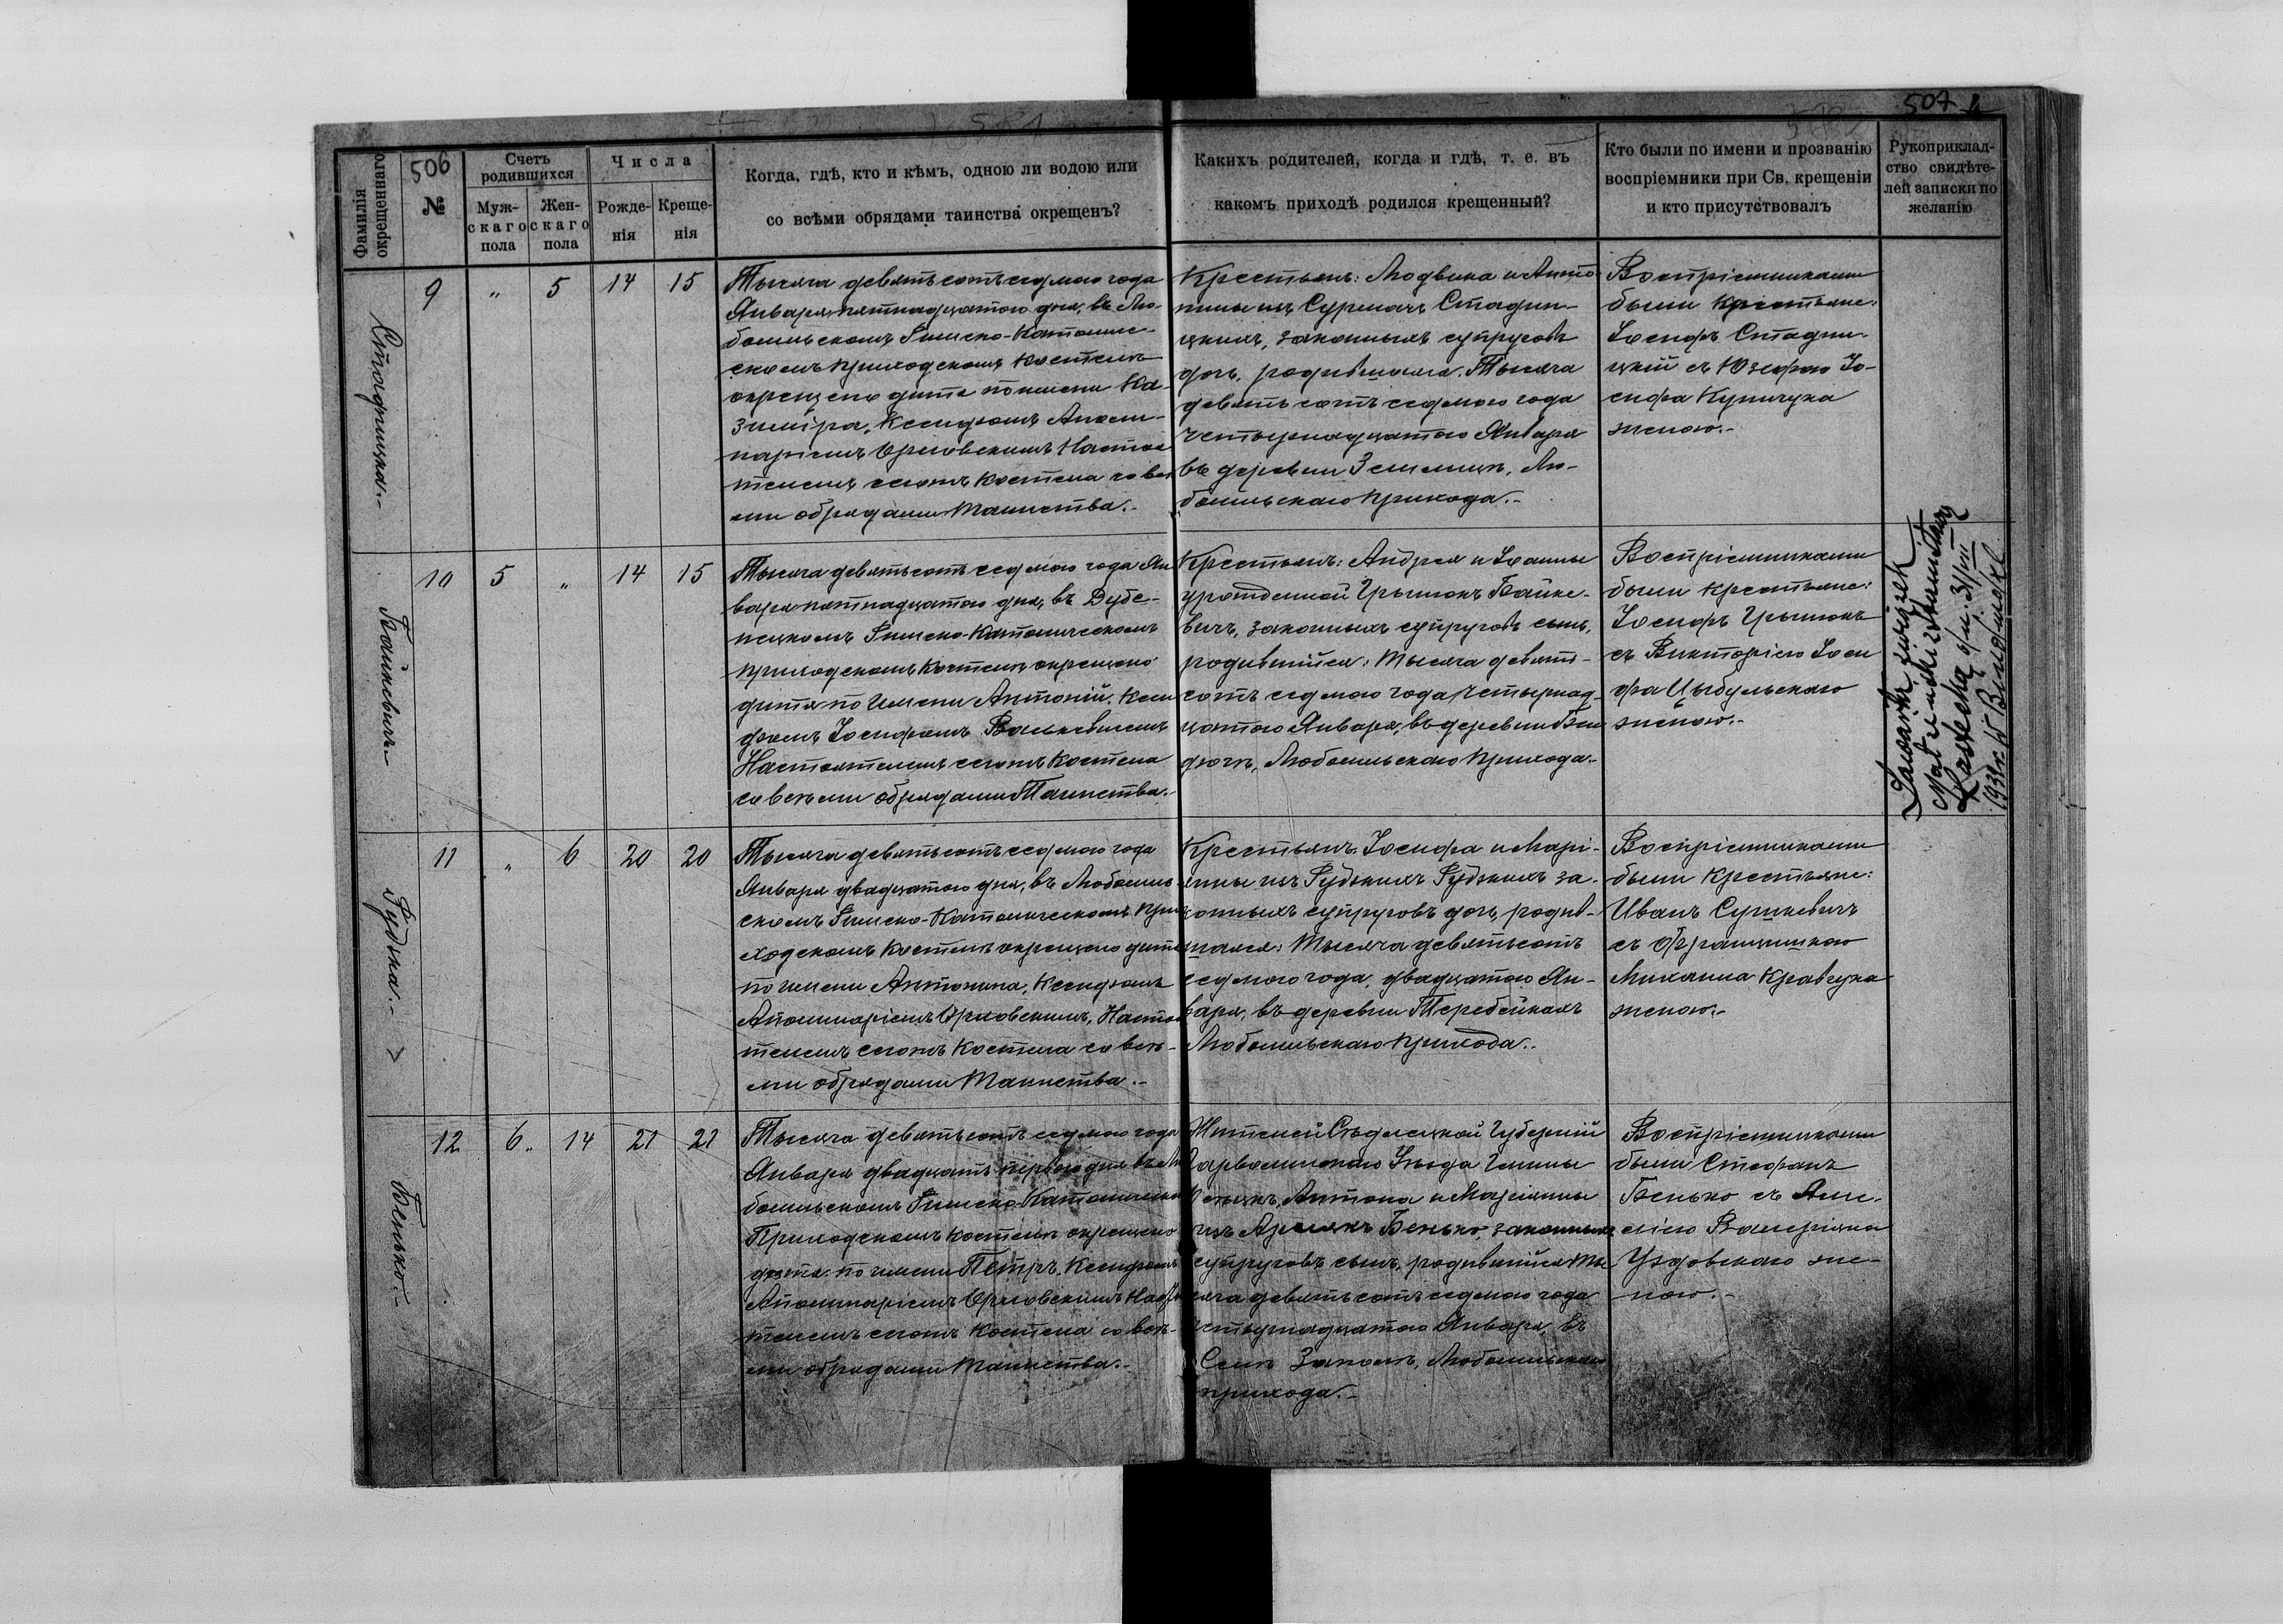 506
507
Фамилія окрещеннаго
№
Счетъ родившихся
Муж-
скаго
пола
Жен-
скаго
пола
Числа
Рожде-
нія
Креще-
нія
Когда, гдѣ, кто и кѣмъ, одною ли водою или
со всѣми обрядами таинства окрещенъ?
Какихъ родителей, когда и гдѣ, т. е. въ
какомъ приходѣ родился крещенный?
Кто были по имени и прозванію
воспріемники при Св. крещеніи
и кто присутствовалъ
Рукоприклад-
ство свидѣте-
лей записки по
желанію
Стадницка.
9
"
5
14
15
Тысяча девятьсотъ седмого года
Января пятнадцатого дня, въ Лю-
бомльскомъ Римско-Католиче-
скомъ приходскомъ костелѣ
окрещено дитя по имени Ка-
зиміра, Ксендзомъ Аполи-
наріемъ Орловскимъ Настоя
телемъ сегожъ костела со всѣ
ми обрядами Таинства.
Крестьянъ: Людвика и Анто-
нины изъ Стадни-
цкихъ, законныхъ супруговъ
дочь, родившаяся Тысяча
девятьсотъ седмого года
четырнадцатого Января
въ деревни Землицѣ, Лю-
бомльскаго прихода.
Воспріемниками
были крестьяне:
Іосифъ Стадни-
цкій съ Юзефою Іо-
сифа Купчука
женою.
Байкевичъ
10
5
"
14
15
Тысяча девятьсотъ седмого года Ян
варя пятнадцатого дня, въ Дубе-
нецкомъ Римско-Католическомъ
приходскомъ костелѣ окрещено
дитя по имени Антоній, Ксен
дзомъ Іосифомъ
Настоятелемъ сегожъ костела
со всѣми обрядами Таинства.
Крестьянъ: Андрея и Іоанны
урожденной Грынюкъ Байке-
вичъ, законныхъ супруговъ сынъ,
родившійся: Тысяча девять-
сотъ седмого года четырнад-
цатого Января, въ деревни
Любомльскаго прихода.
Воспріемниками
были крестьяне:
Іосифъ Грынюкъ
съ Викторіею Іоси
фа Цыбульскаго
женою.
Zawarł związek
małżeński z
31/VII
193
Рудзка.
11
"
6
20
20
Тысяча девятьсотъ седмого года
Января двадцатого дня, въ Любомль
скомъ Римско-Католическомъ При
ходскомъ костелѣ окрещено дитя
по имени Антонина, Ксендзомъ
Аполинаріемъ Орловскимъ, Настоя
телемъ сегожъ костела со всѣ-
ми обрядами Таинства.
Крестьянъ Іосифа и Марі-
янны изъ Рудзкихъ Рудзкихъ за-
конныхъ супруговъ дочь, родив-
шаяся: Тысяча девятьсотъ
седмого года, двадцатого Ян-
варя, въ деревни Теребейкахъ
Любомльскаго прихода.
Воспріемниками
были крестьяне:
Иванъ Сушкевичъ
съ Францишкою
Михаила Кравчука
женою.
Бенько.
12
6
14
21
21
Тысяча девятьсотъ седмого года
Января двадцать первого дня въ Лю
бомльскомъ Римско-Католическо
Приходскомъ костелѣ окрещено
дитя по имени Петръ, Ксендзомъ
Аполинаріемъ Орловскимъ Настоя
телемъ сегожъ костела со всѣ-
ми обрядами Таинства.
Жителей Сѣдлецкой Губерніи
Гарволинскаго Уѣзда Гмины
Антона и Маріянны
изъ Бенько, законныхъ
супруговъ сынъ, родившійся Ты
сяча девятьсотъ седмого года
четырнадцатого Января, въ
Селѣ Любомльскаго
прихода.
Воспріемниками
были Стефанъ
Бенько съ Аме-
ліею Валеріяна
Уздовскаго же-
ною.